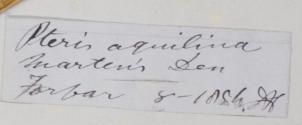 Pteris aquilina
Marten's Den
Forfar 8-1856. JH